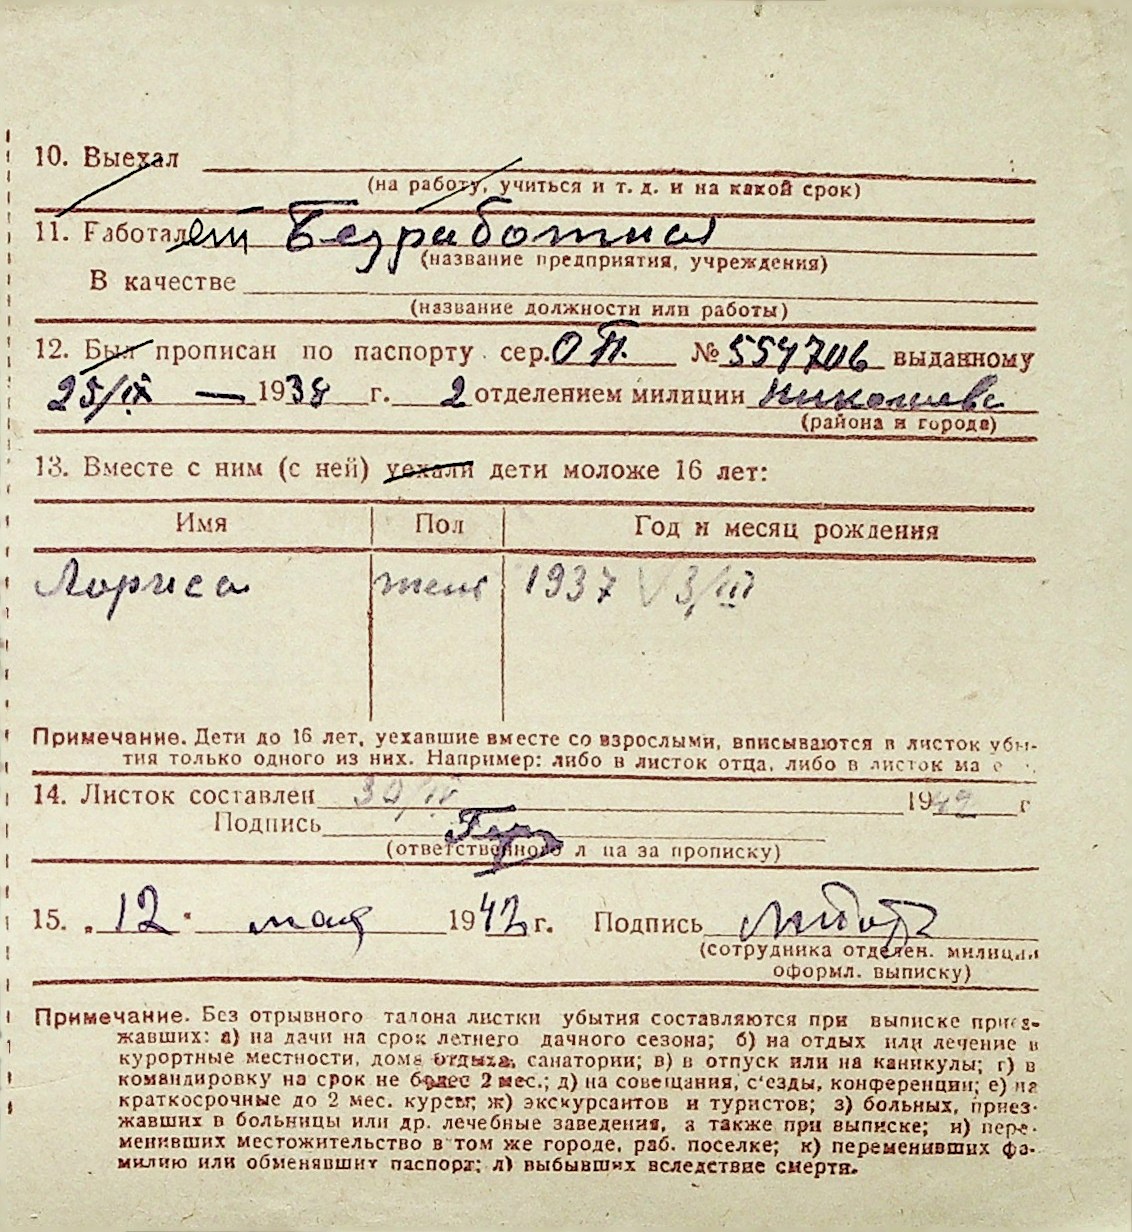 10. Выехал
(на работу, учиться и т. д. и на какой срок)
11. Работал ет Безработная
(название предприятия, учреждения)
В качестве
(название должности или работы)
12. Был прописан по паспорту сер. ОП. № 554706 выданному
25/IX — 1938 г. 2 отделением милиции Николаева
(района и города)
13. Вместе с ним (с ней) уехали дети моложе 16 лет:
Имя Пол Год и месяц рождения
Лариса жен 1937 3/III
Примечание. Дети до 16 лет, уехавшие вместе со взрослыми, вписываются в листок убы-
тия только одного из них. Например: либо в листок отца, либо в листок ма е
14. Листок составлен 30/IV 1942 г
Подпись
(ответственного л ца за прописку)
15. „ 12 " мая 1942 г. Подпись
(сотрудника отделен. милиции
оформл. выписку)
Примечание. Без отрывного талона листки убытия составляются при выписке приез-
жавших: а) на дачи на срок летнего дачного сезона; б) на отдых или лечение в
курортные местности, дома отдыха, санатории; в) в отпуск или на каникулы; г) в
командировку на срок не более 2 мес.; д) на совещания, с'езды, конференции; е) на
краткосрочные до 2 мес. курсы; ж) экскурсантов и туристов; з) больных, приез-
жавших в больницы или др. лечебные заведения, а также при выписке; и) пере-
менивших местожительство в том же городе, раб. поселке; к) переменивших фа-
милию или обменявших паспорт; л) выбывших вследствие смерти.